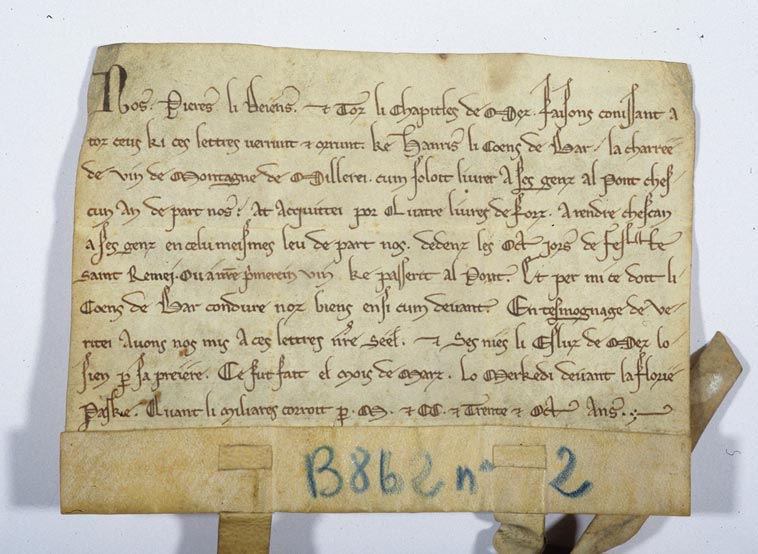 Nos. Pieres li Deiens. & Toz li Chapitles de Mez. faisons conissant a
toz ceus ki ces lettres verrunt & orrunt. ke Hanris li Coens de Bar. la charree
de vin de Montagne de Millerei. cum soloit livrer a ses genz al Pont chas
cun An de part nos. At acquittei por Quatre livres de forz. A rendre chascun
a ses genz en celu meismes leu de part nos. dedenz les Oct jors de feste
saint Remei. Ou a nre p'merein vin ke passerit al Pont. Et per mi ce doit li
Coens de Bar conduire noz biens ensi cum devant. En tesmognage de ve-
ritei Avons nos mis A ces lettres nre Seel. & Ses nies li Esliz de Mez lo
sien p sa preiere. Ce fut fait el mois de Marz. Lo Merkedi devant la florie
Paske. Quant li miliares corroit p. M. & CC. & Trente & Oct Ans.
B862 n° 2